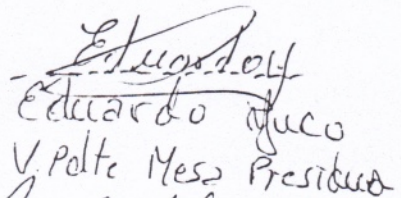 Eduardo
Eduardo Yuco
V. Pdte Mesa Presidua